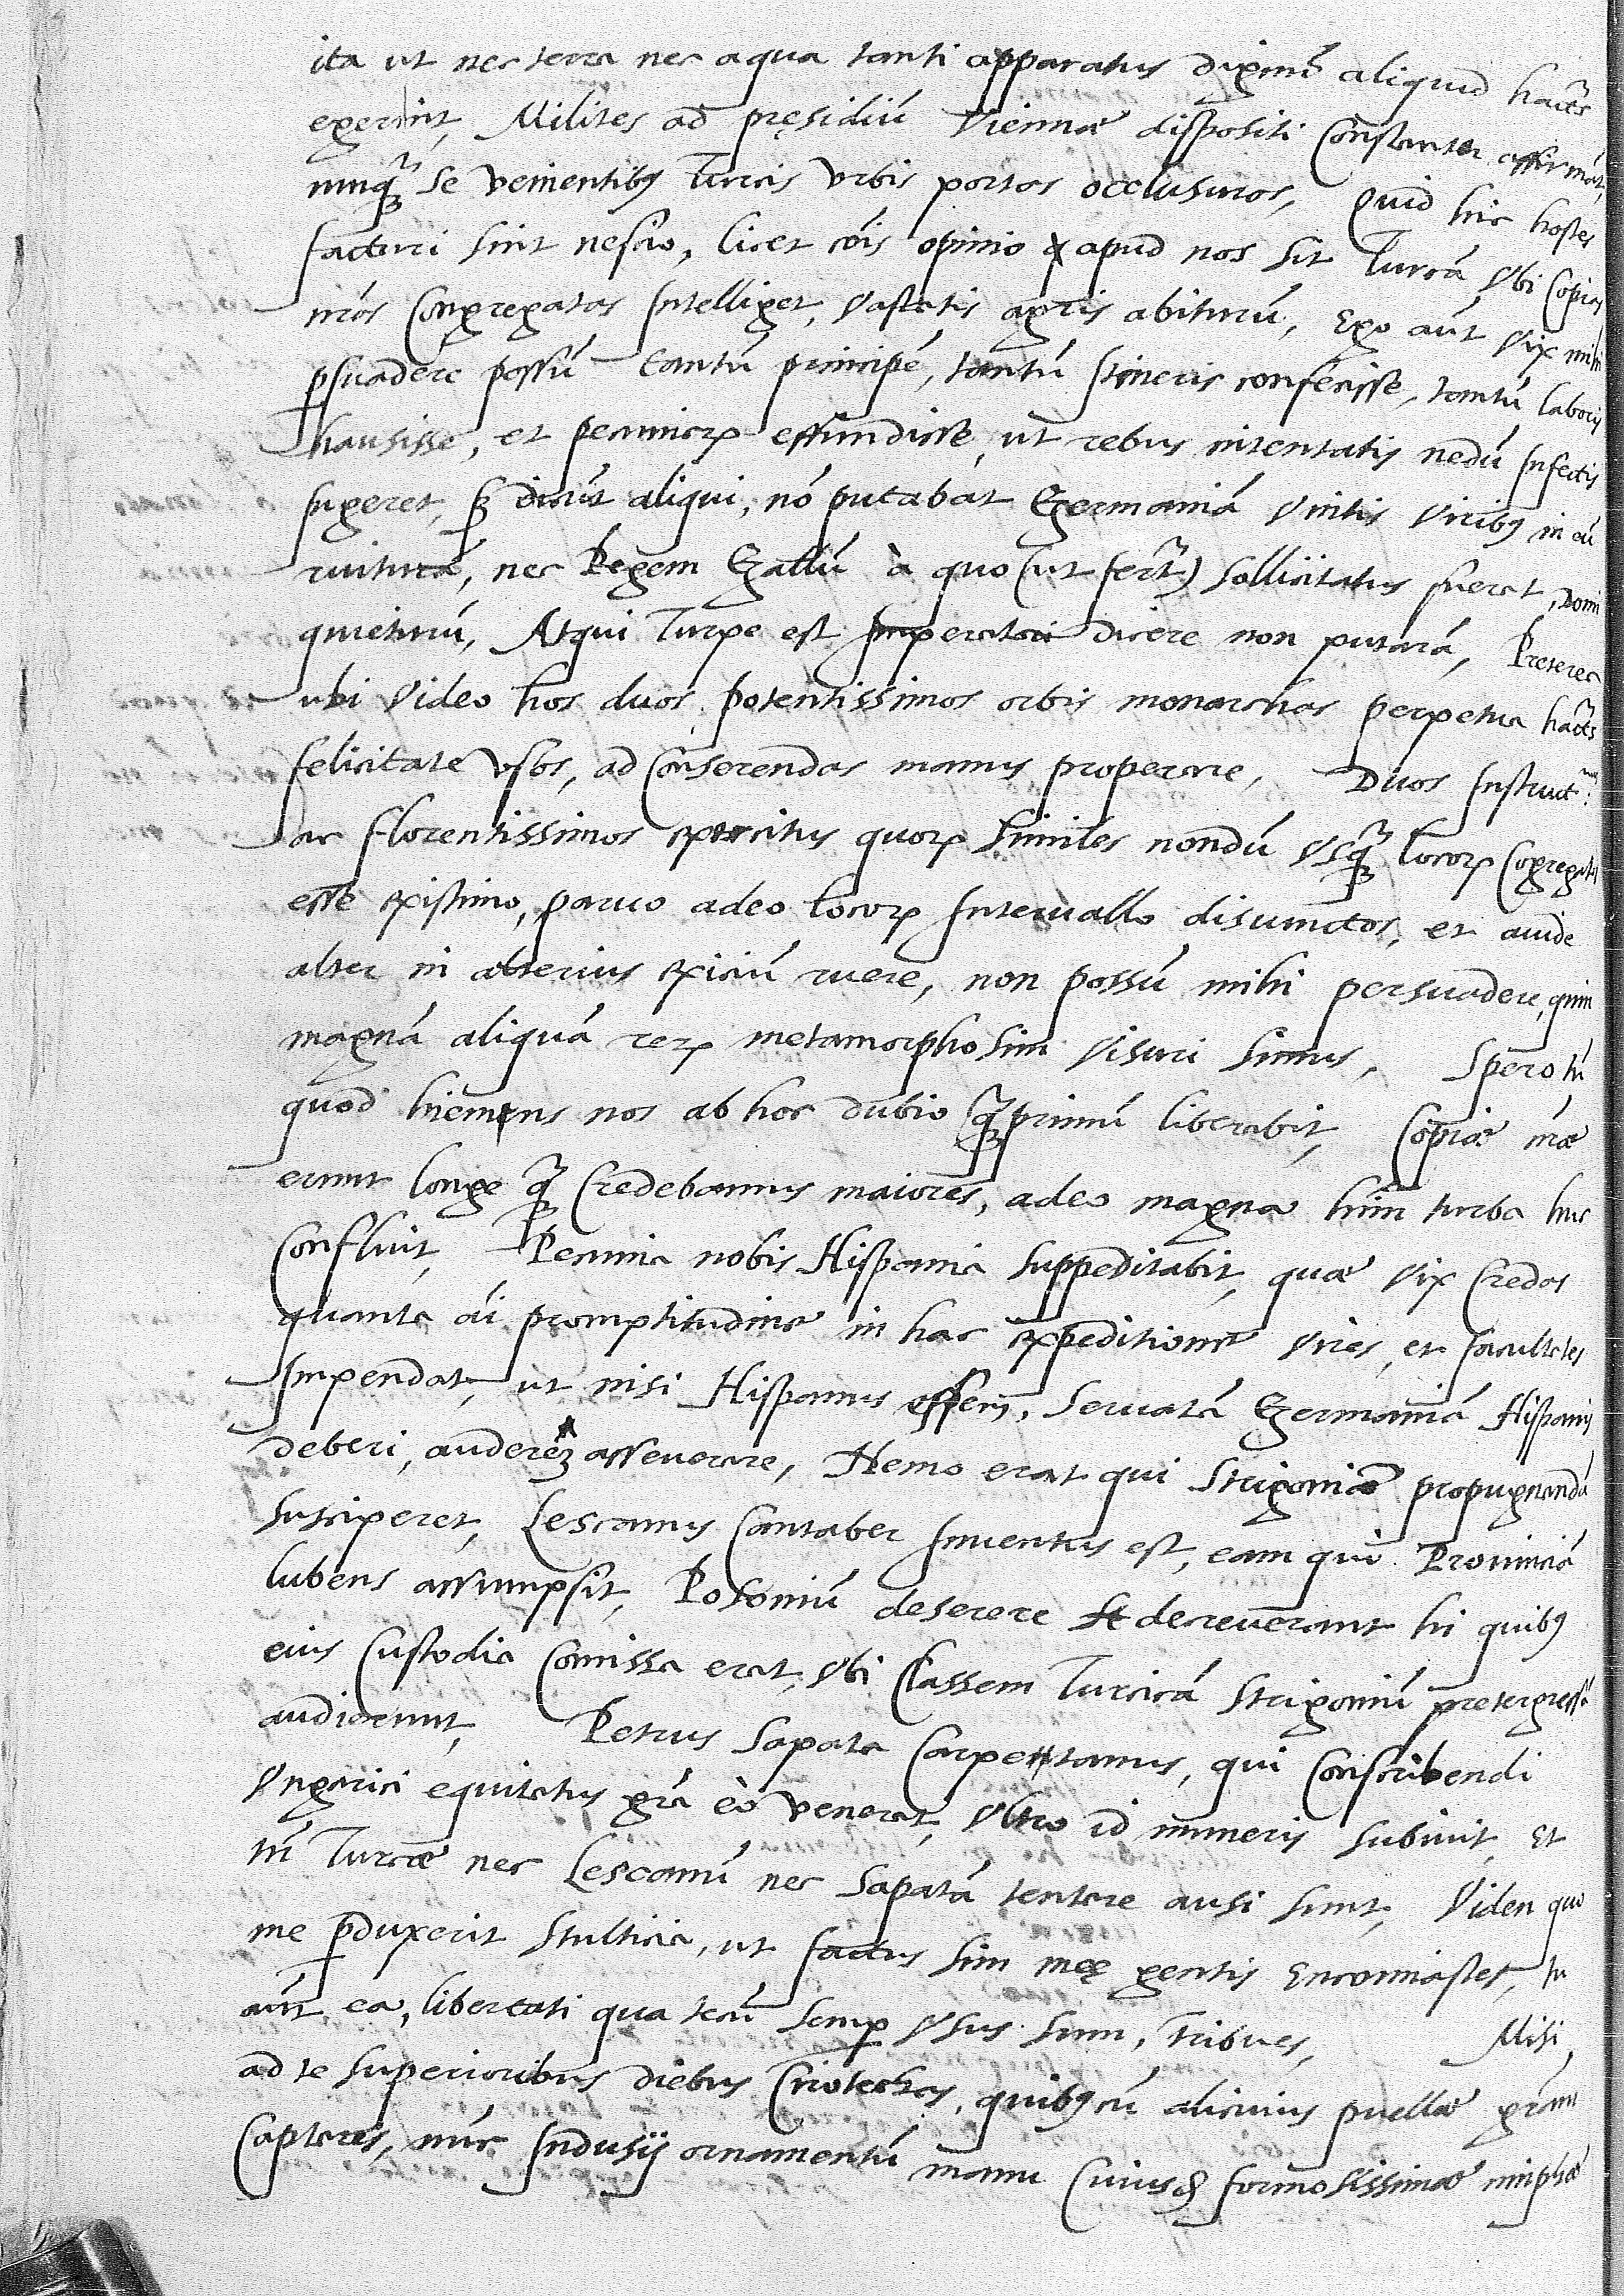 ita ut nec terra nec aqua tanti apparatus dignũ aliquid hact's
egerint, Milites ad pręsidiũ Viennæ dispositi Constanter affirmãt,
nunq̃ se venientib9 Turcis vrbis portas occlusuros, Quid hic hostes
facturi sint nescio, licet cõis opinio apud nos sit Turcã vbi Copias
nr̃as Congregatas Intelliget, vastatis agris abiturũ, Ego aũt vix mihi
p̱suadere possũ tantũ principẽ, tantũ Itineris confecisse, tantũ laboris
hausisse, et pecuniaꝝ effundisse, ut rebus intentatis nedũ Infectis
fugeret, sꝫ dicũt aliqui, nõ putabat Germaniã vnitis virib9 in eũ
ruiturã, nec Regem Gallũ à quo (ut fert̃) sollicitatus fuerat, domi
quieturũ, Atqui Turpe est Imperatori dicere non putarã, Preterea
ubi video hos duos potentissimos orbis monarchas perpetua hact's
felicitate vsos, ad Conserendas manus properare, Duos Instruct.mos
ac florentissimos exercitus quoꝝ similes nondũ vsq̃ locoꝝ Cõgregatos
esse existimo, paruo adeo locoꝝ Interuallo disiunctos, et auide
alter in alterius exiciũ ruere, non possũ mihi persuadere, quin
magnã aliquã reꝝ metamorphosim visuri simus, Spero tñ
quod hiems nos ab hoc dubio q̃primũ liberabit, Copiæ nr̃æ
erunt longe q̃ Credebamus maiores, adeo magna hinc turba huc
Confluit, Pecunia nobis Hispania suppeditabit, quæ vix Credas
quanta aĩ promptitudine in hac expeditione vires, et facultates
Impendat, ut nisi Hispanus essem, Seruatã Germaniã Hispanis
deberi, auderẽ asseuerare, Nemo erat qui Strigoniæ propugnandã
susciperet, Lescanus Cantaber Inuentus est, eam qui Prouinciã
lubens assumpsit, Posoniũ deserere decreuerant hi quib9
eius Custodia Comissa erat, vbi Classem Turcicã Strigoniũ pretergressã
audierunt, Petrus Sapata Carpentanus, qui Conscribendi
Vngarici equitatus grã eò venerat, vltro id muneris subiuit, Et
tñ Turcæ nec Lescanũ nec Sapatã tentare ausi sunt, Viden quo
me p̱duxerit stulticia, ut factus sim meę gentis Encomiastes, tu
aũt ea, libertati qua tecũ semp̱ vsus sum, tribues, Misi
ad te superioribus diebus Chirotechas, quib9 cũ alicuius puellæ grãm
Captares, nũc Indusij ornamentũ manu Cuiusd̃ formosissimæ nimphæ